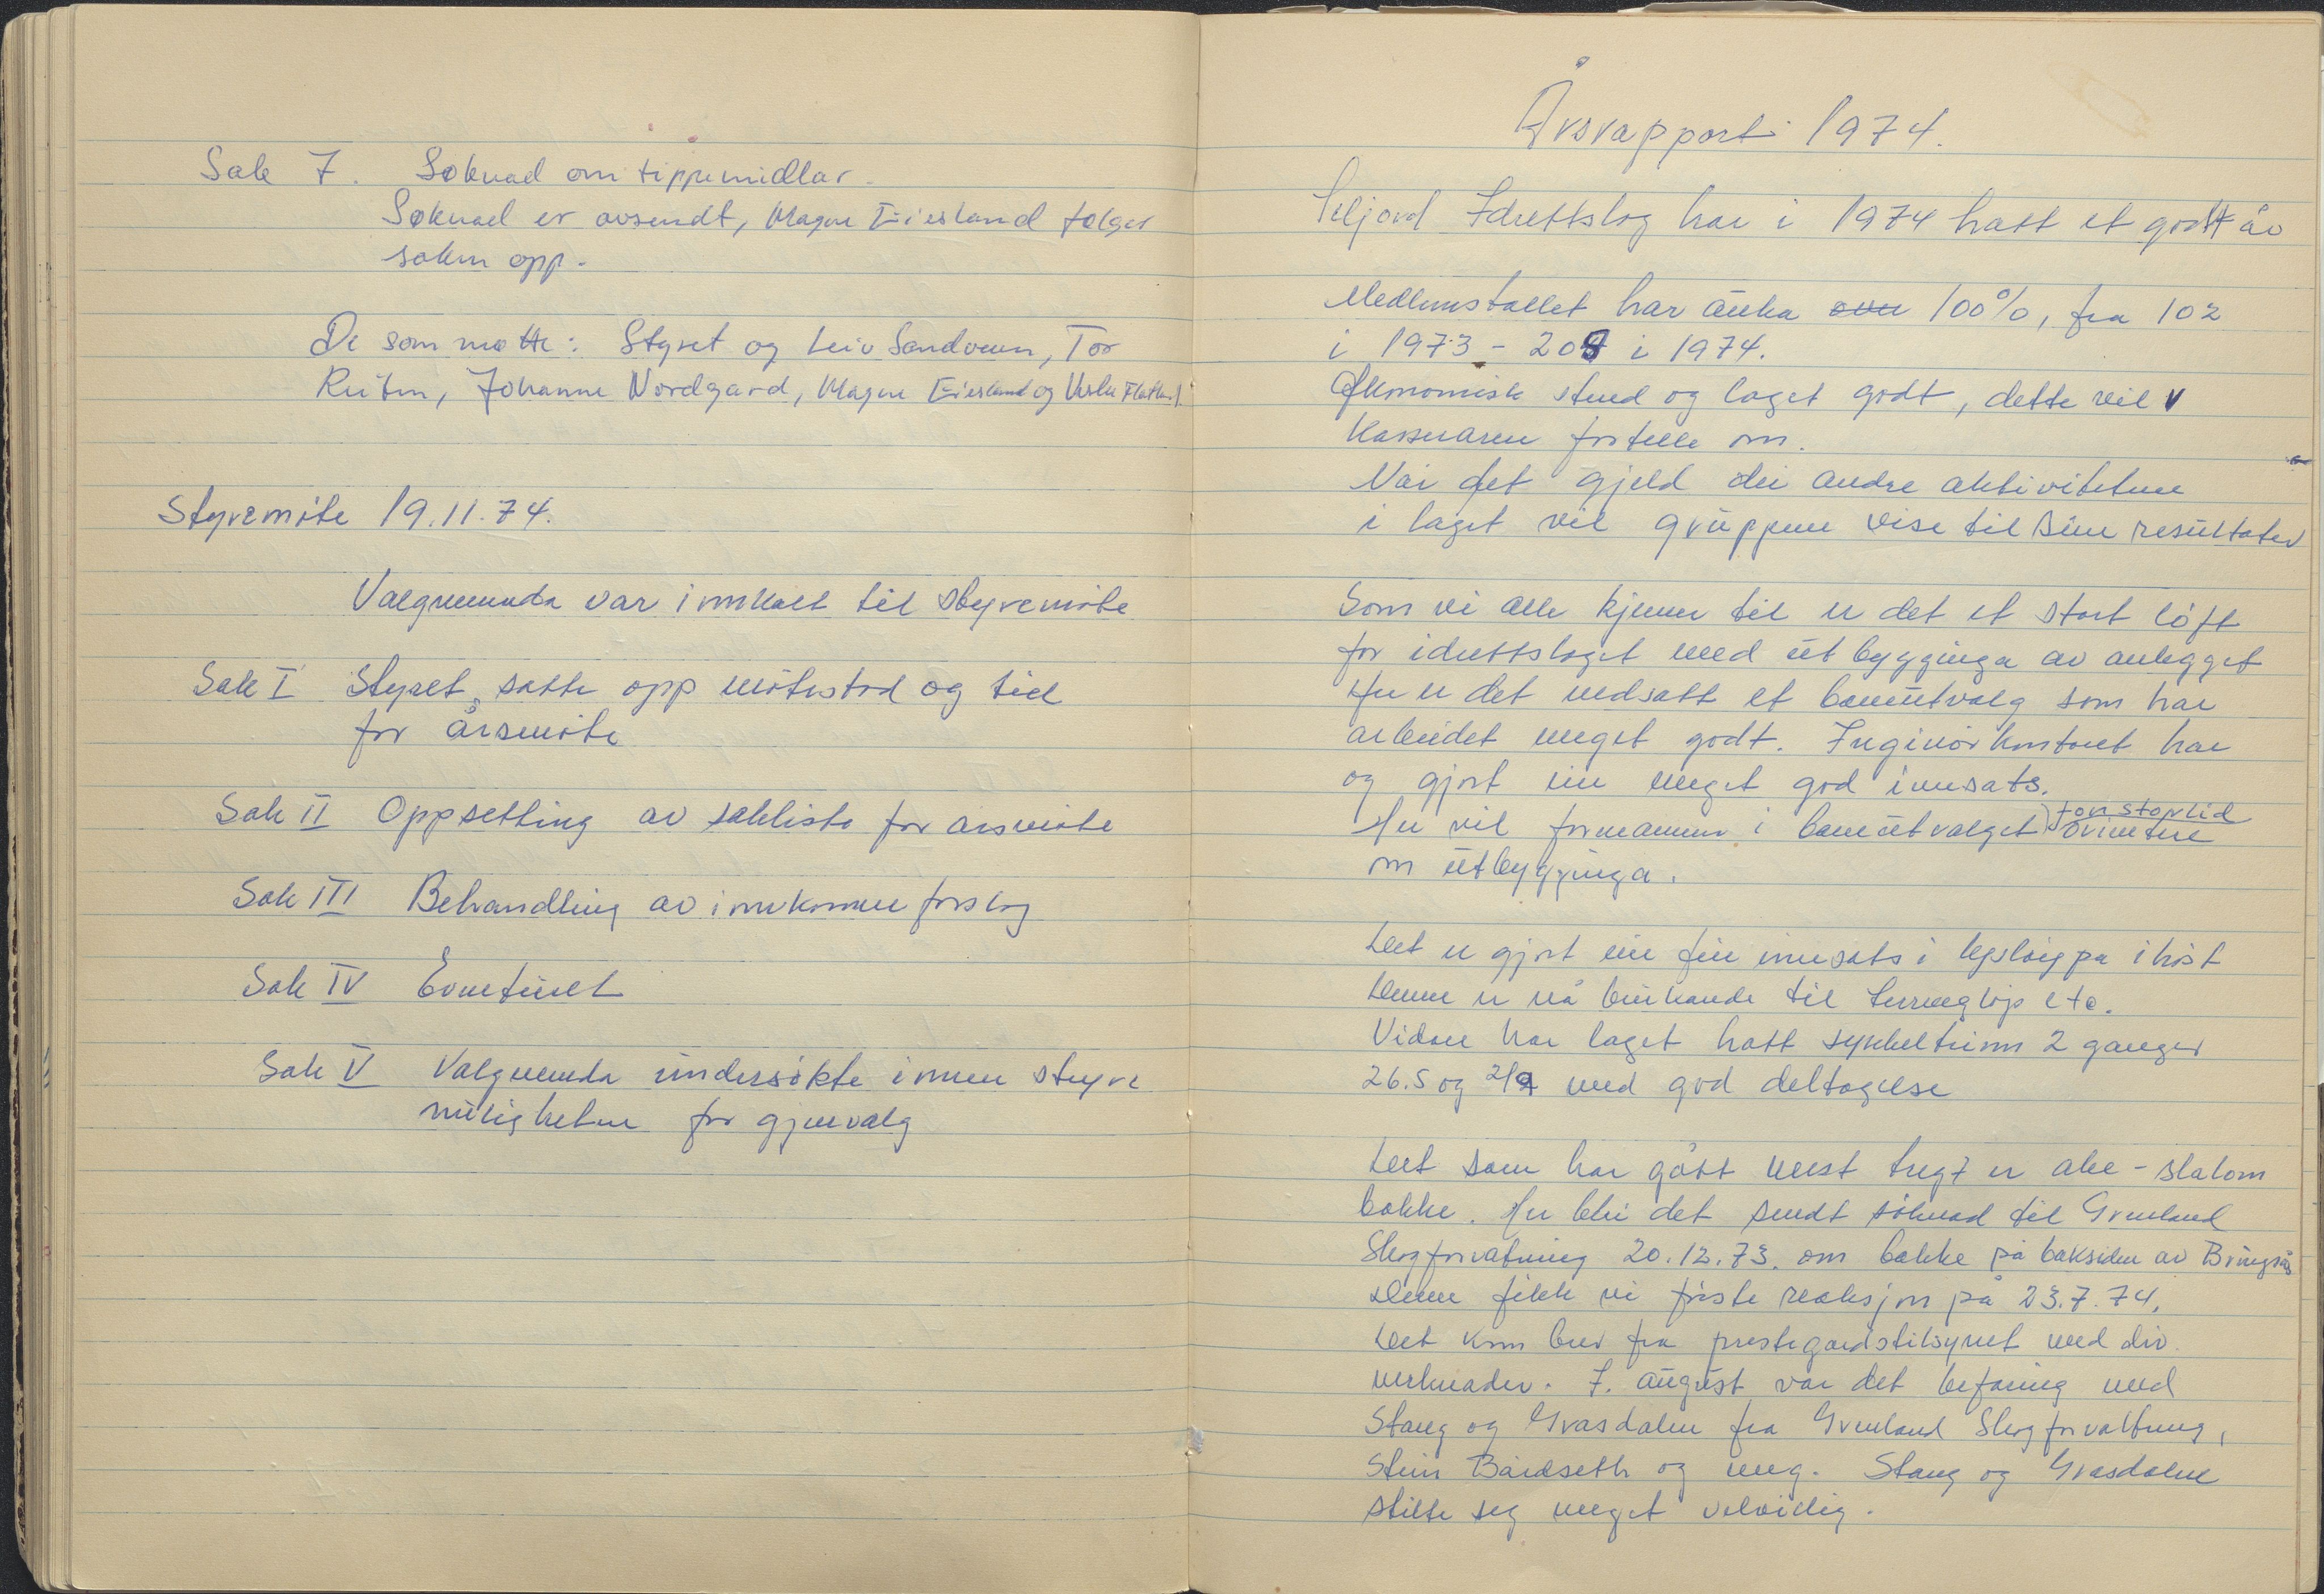 Sak 7. Søknad om tippemidlar.
Søknad er avsendt, Magne Eiesland følger
saken opp.
De som møtte: Styret og Leiv Sandveen, Tor
Johanne Nordgard, Magne Eiesland og
Styremöte 19.11.74.
Valgnemnda var innkalt til styremöte
Sak I Styret satte opp mötestad og tid
for årsmöte
Sak II Oppsetting av sakliste for årsmöte
Sak III Behandling av innkomne forslag
Sak IV Eventuelt
Sak V Valgnemnda undersökte innen styre
muligheten for gjenvalg
Årsrapport 1974.
Seljord Idrettslag har i 1974 hatt et godt år
Medlemstallet har auka over 100%, fra 102
i 1973 - 208 i 1974.
Økonomisk stend og laget godt, dette vil
kasseraren fortelle om.
Når det gjeld dei andre aktivitetene
i laget vil gruppene vise til sine resultater
Som vi alle kjenner til er det et stort löft
for idrettslaget med utbygginga av anlegget
Her er det nedsatt et baneutvalg som har
arbeidet meget godt. Ingeniörkontoret har
og gjort ein meget god innsats.
Her vil formannen i baneutvalget Jon Storlid orientere
om utbygginga.
Det er gjort ein fin innsats i lysløypa i höst
Denne er nå brukande til terrengløp etc.
Vidare har laget hatt sykkeltrimm 2 ganger
26.5 og 2/9 med god deltagelse
Det som har gått mest tregt er ake-slalom
bakke. Her blei det sendt söknad til Grenland
Skogforvaltning 20.12.73. om bakke på baksiden av Bringsås
Denne fikk vi förste reaksjon på 23.7.74.
Det kom brev fra prestegardstilsynet med div.
merknader. 7. august var det befaring med
Stang og Grasdalen fra Grenland Skogforvaltning,
Stein Bårdseth og meg. Stang og Grasdalen
stilte seg meget velvillig.